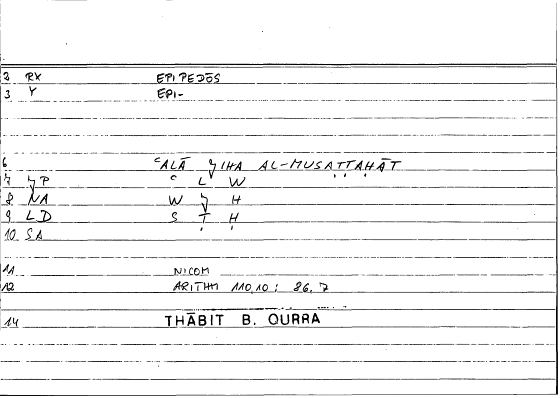 2 RX EPIPEDŌS
3 Y EPI-
6 ʿALĀ ǦIHA AL-MUSAṬṬAḤĀT
7 ǦP ʿ L W
8 NA W Ǧ H
9 LD S Ṭ Ḥ
10 SA
11 NICOM
12 ARITHM 110,10; 86,7
14 THĀBIT B. QURRA